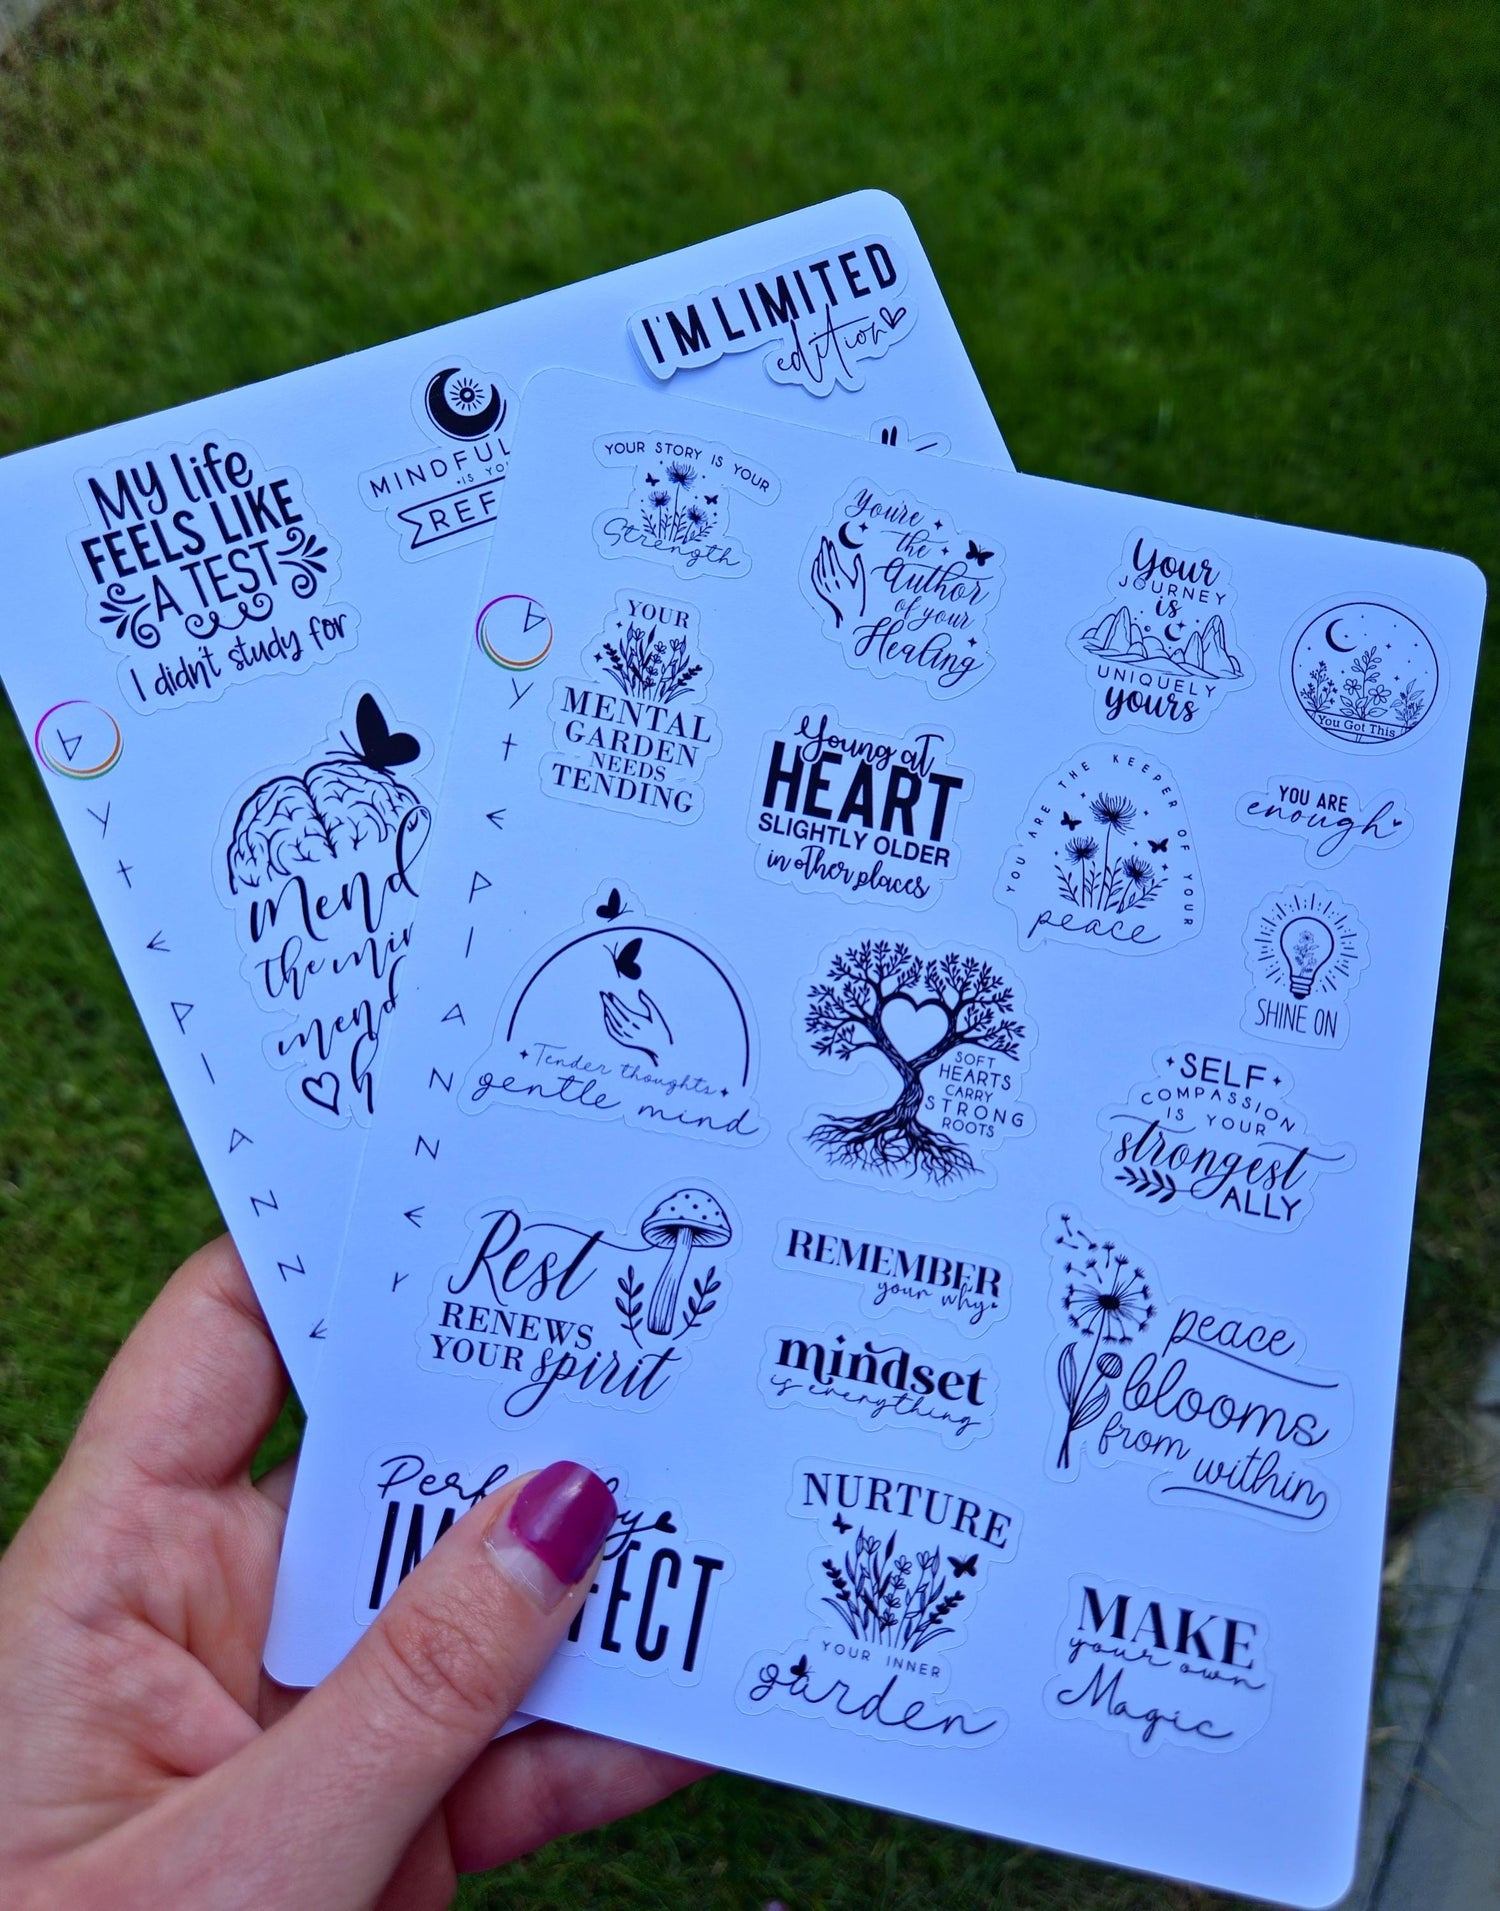 I'M LIMITED
edition
My life
FEELS LIKE
A TEST
I didn't study for
Mend
the
mend
YOUR STORY IS YOUR
Strength
You're
the
Author
of your
Healing
Your
JOURNEY
is
UNIQUELY
yours
You Got This
YOUR
MENTAL
GARDEN
NEEDS
TENDING
Young at
HEART
SLIGHTLY OLDER
in other places
YOU ARE THE KEEPER OF YOUR
peace
YOU ARE
enough
SHINE ON
Tender thoughts
gentle mind
SOFT
HEARTS
CARRY
STRONG
ROOTS
SELF
COMPASSION
IS YOUR
strongest
ALLY
Rest
RENEWS
YOUR spirit
REMEMBER
your why
mindset
is everything
peace
blooms
from within
NURTURE
YOUR INNER
garden
MAKE
your own
Magic